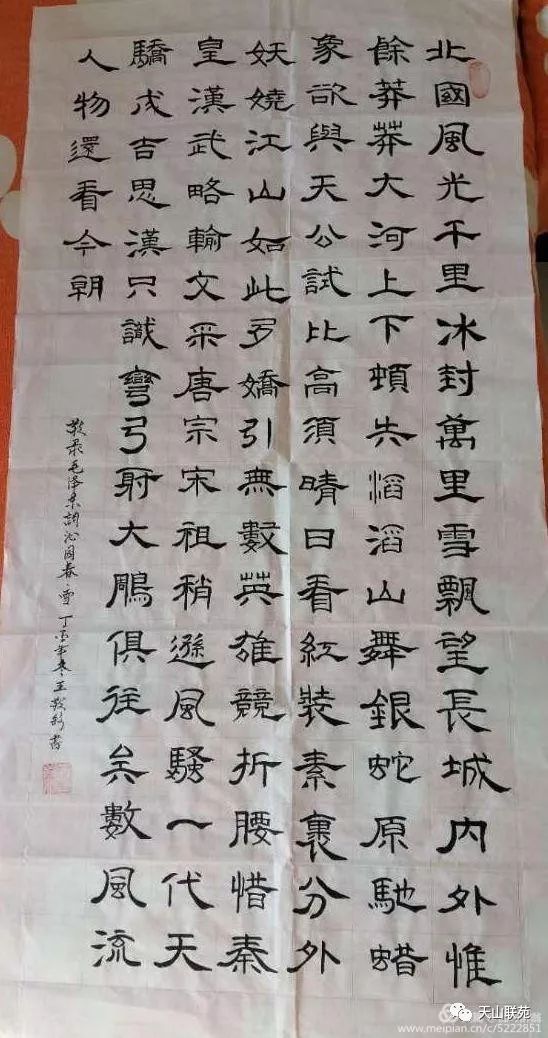 北國風光千里冰封萬里雪飄望長城內外惟
餘莽莽大河上下頓失滔滔山舞銀蛇原馳蜡
象欲與天公試比高須晴日看紅裝素裹分外
妖嬈江山如此多嬌引無數英雄競折腰惜秦
皇漢武略輸文采唐宗宋祖稍遜風騷一代天
驕成吉思漢只識彎弓射大鵰俱往矣數風流
人物還看今朝
敬录毛泽东词沁园春 雪 丁年冬王書
天山联苑
www.meipian.cn/c/5222851